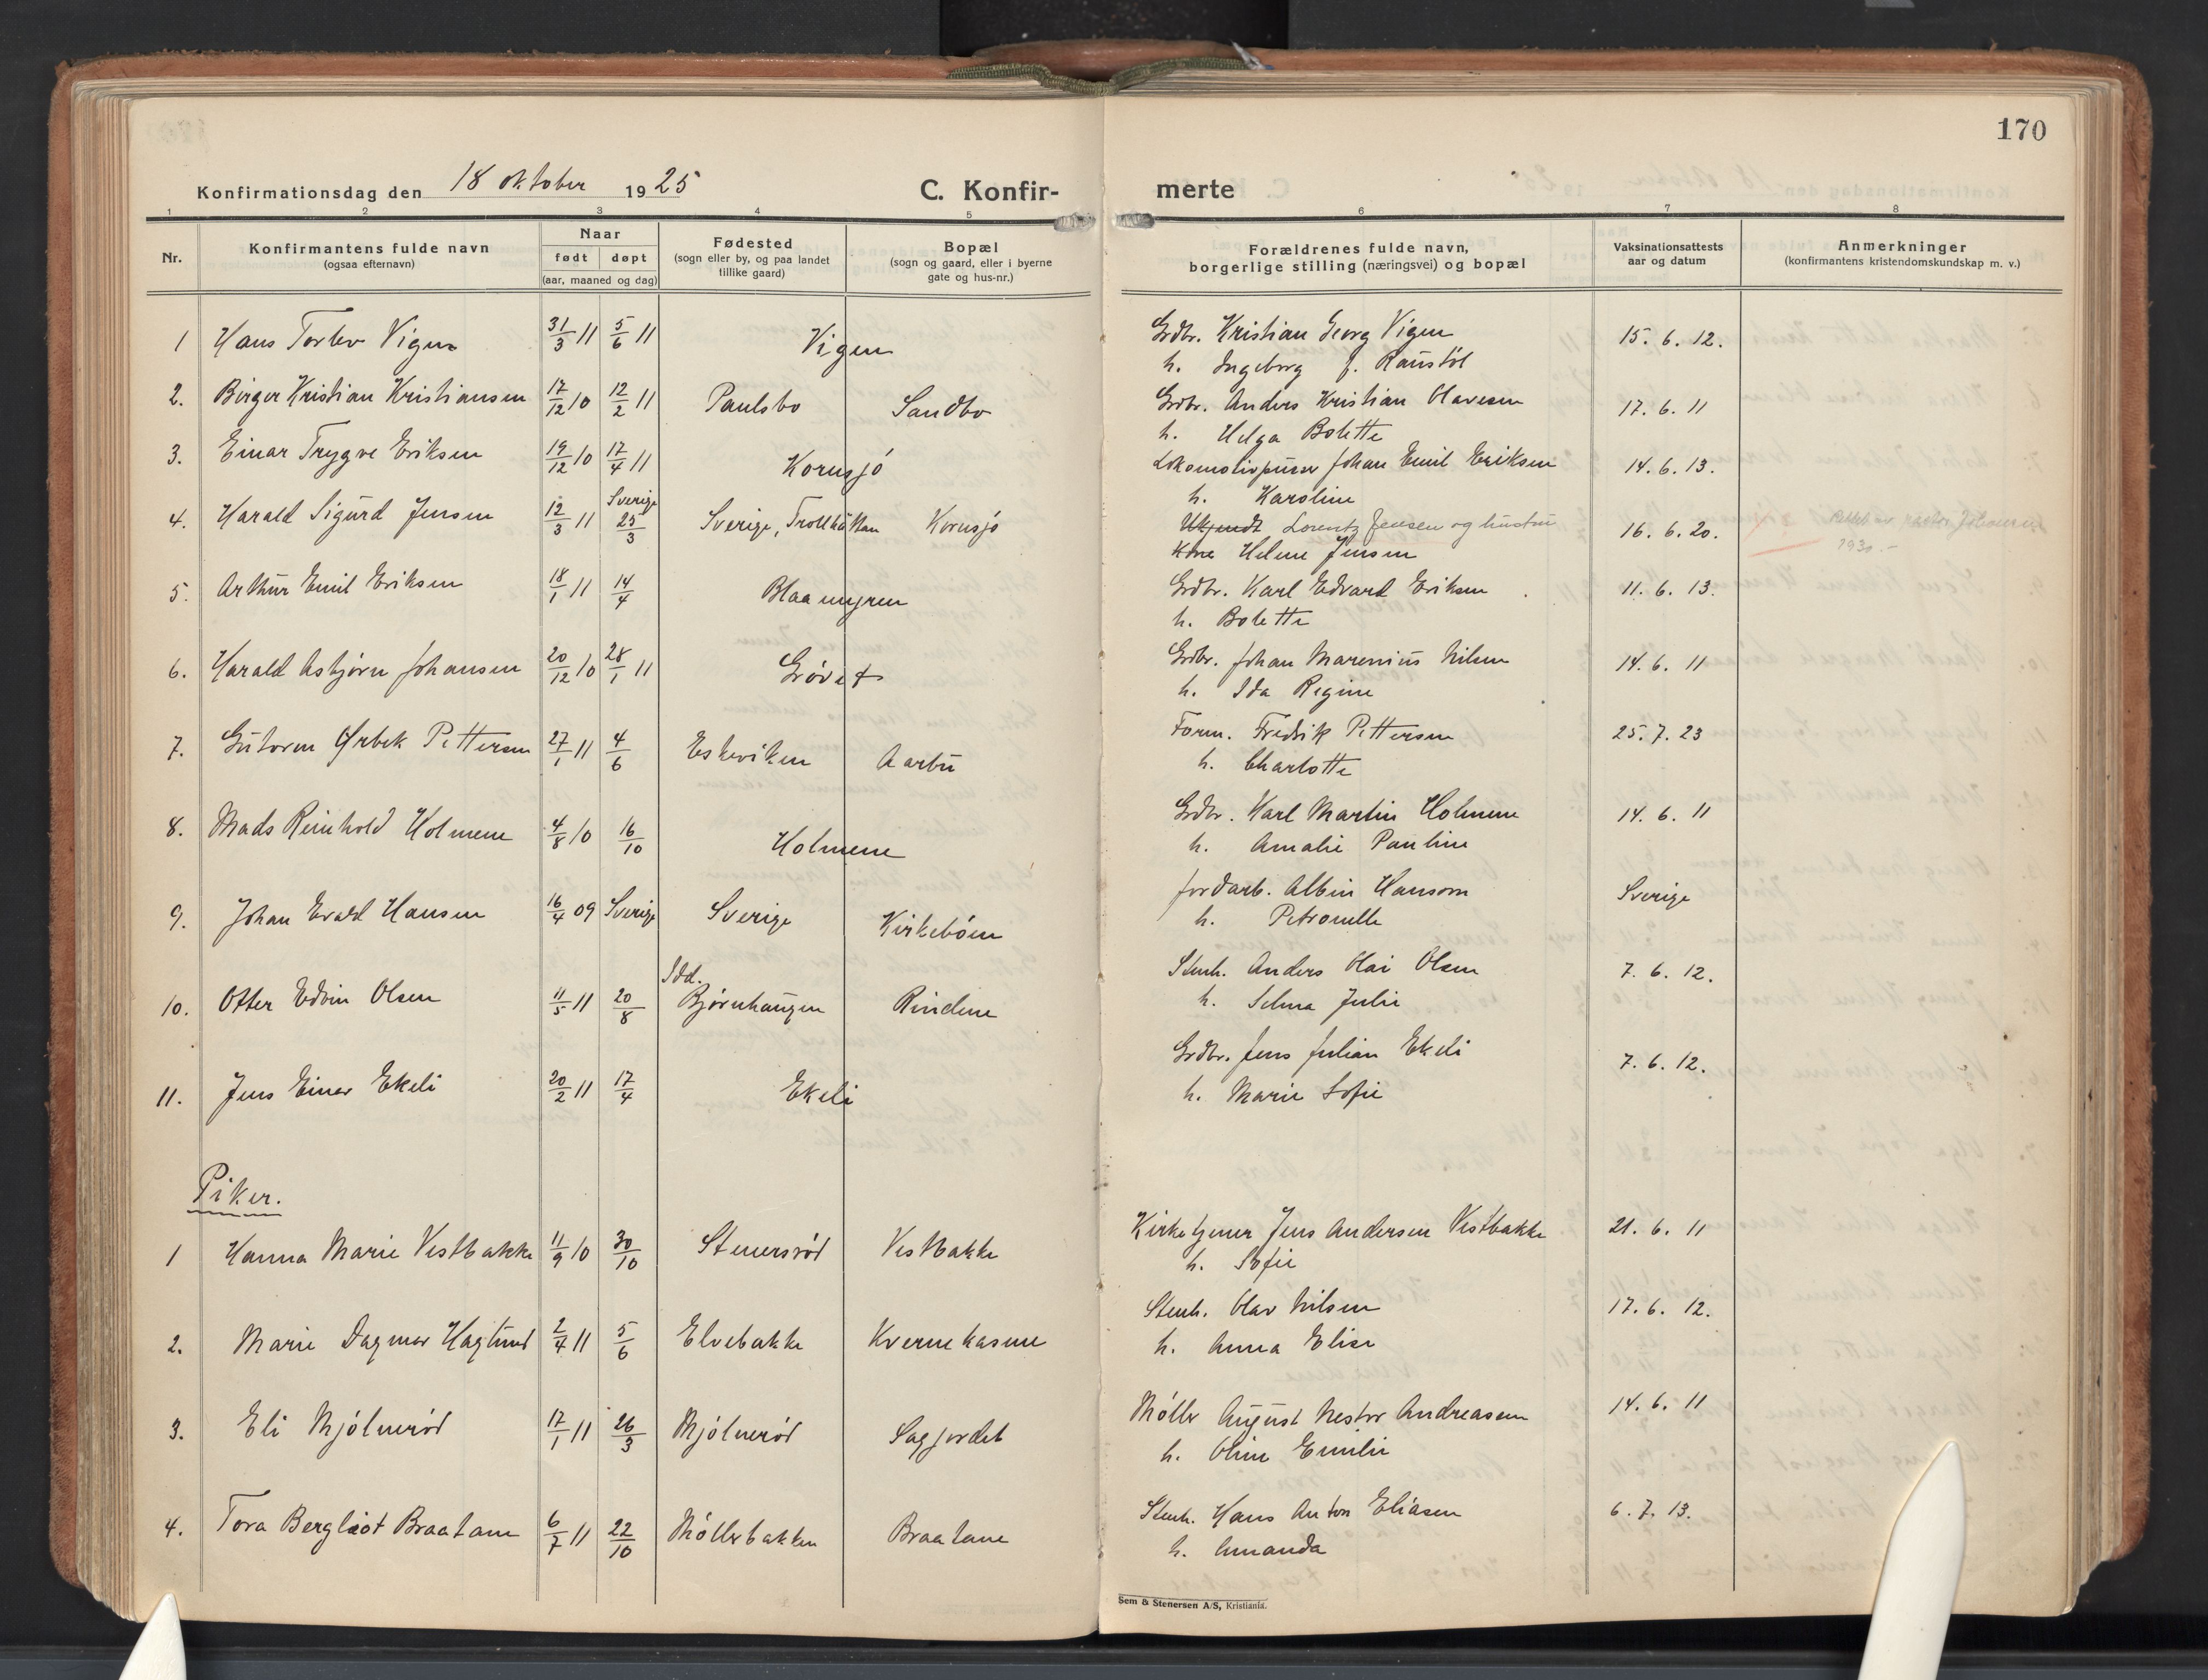 170
Konfirmationsdag den 18 oktober 1925
C. Konfir-
merte
1 2 3 4 5 6 7 8
Nr.
Konfirmantens fulde navn
(ogsaa efternavn)
Naar
født døpt
(aar, maaned og dag)
Fødested
(sogn eller by, og paa landet
tillike gaard)
Bopæl
(sogn og gaard, eller i byerne
gate og hus-nr.)
Forældrenes fulde navn,
borgerlige stilling (næringsvei) og bopæl
Vaksinationsattests
aar og datum
Anmerkninger
(konfirmantens kristendomskundskap m. v.)
1 Hans Torlev Vigen 31/3 11 5/6 11 Vigen Grdbr. Kristian Georg Vigen 15. 6. 12.
h. Ingeborg f. Raustöl
2. Birger Kristian Kristiansen 17/12 10 12/2 11 Paulsbo Sandbo Grdbr. Anders Kristian Olavesen 17. 6. 11
h. Helga Bolette
3. Einar Trygve Eriksen 19/12 10 17/4 11 Kornsjó Lokomotivpusser Johan Emil Eriksen 14. 6. 13.
h. Karoline
4. Harald Sigurd Jensen 12/3 11 Sverige 25/3 Sverige, Trollhättan Kornsjó Ukjendt Lorentz Jensen og hustru 16. 6. 20.
Kone Helene Jensen
1930.-
5. Arthur Emil Eriksen 18/1 11 14/4 Blaamyren Grdbr. Karl Edvard Eriksen 11. 6. 13.
h. Bolette
6. Harald Asbjørn Johansen 20/12 10 28/1 11 Gróvet Grdbr. Johan Marenius Nilsen 14. 6. 11
h. Ida Regine
7. Gutorm Ørbek Pettersen 27/1 11 4/6 Eskeviken Aarbu Form. Fredrik Pettersen 25. 7. 23
h. Charlotte
8. Mads Reinhold Holmene 4/8 10 16/10 Holmene Grdbr. Karl Martin Holmene 14. 6. 11
h. Amalie Pauline
9. Johan Evald Hansen 16/4 09 Sverige Sverige Kirkebóen Jordarb. Albin Hanson Sverige
h. Petronelle
10. Otter Edvin Olsen 11/5 11 20/8 Idd. Bjørnhaugen Rindene Stenh. Anders Olai Olsen 7. 6. 12.
h. Selma Julie
11. Jens Einar Ekeli 20/2 11 17/4 Ekeli Grdbr. Jens Julian Ekeli 7. 6. 12.
h. Marie Sofie
Piker.
1 Hanna Marie Vestbakke 11/9 10 30/10 Stenersrød Vestbakke Kirketjener Jens Andersen Vestbakke 21. 6. 11
h. Sofie
2. Marie Dagmar Haglund 2/4 11 5/6 Elvebakke Kvernekasene Stenh. Olav Nilsen 17. 6. 12.
h. Anna Elise
3. Eli Mjólneród 17/1 11 26/3 Mjólneród Sagjordet Móller August Nestor Andreasen 14. 6. 11
h. Oline Emilie
4. Tora Bergliot Braatane 6/7 11 22/10 Móllerbakken Braatane Stenh. Hans Anton Eliasen 6. 7. 13.
h. Amanda
Sem & Stenersen A/S, Kristiania.